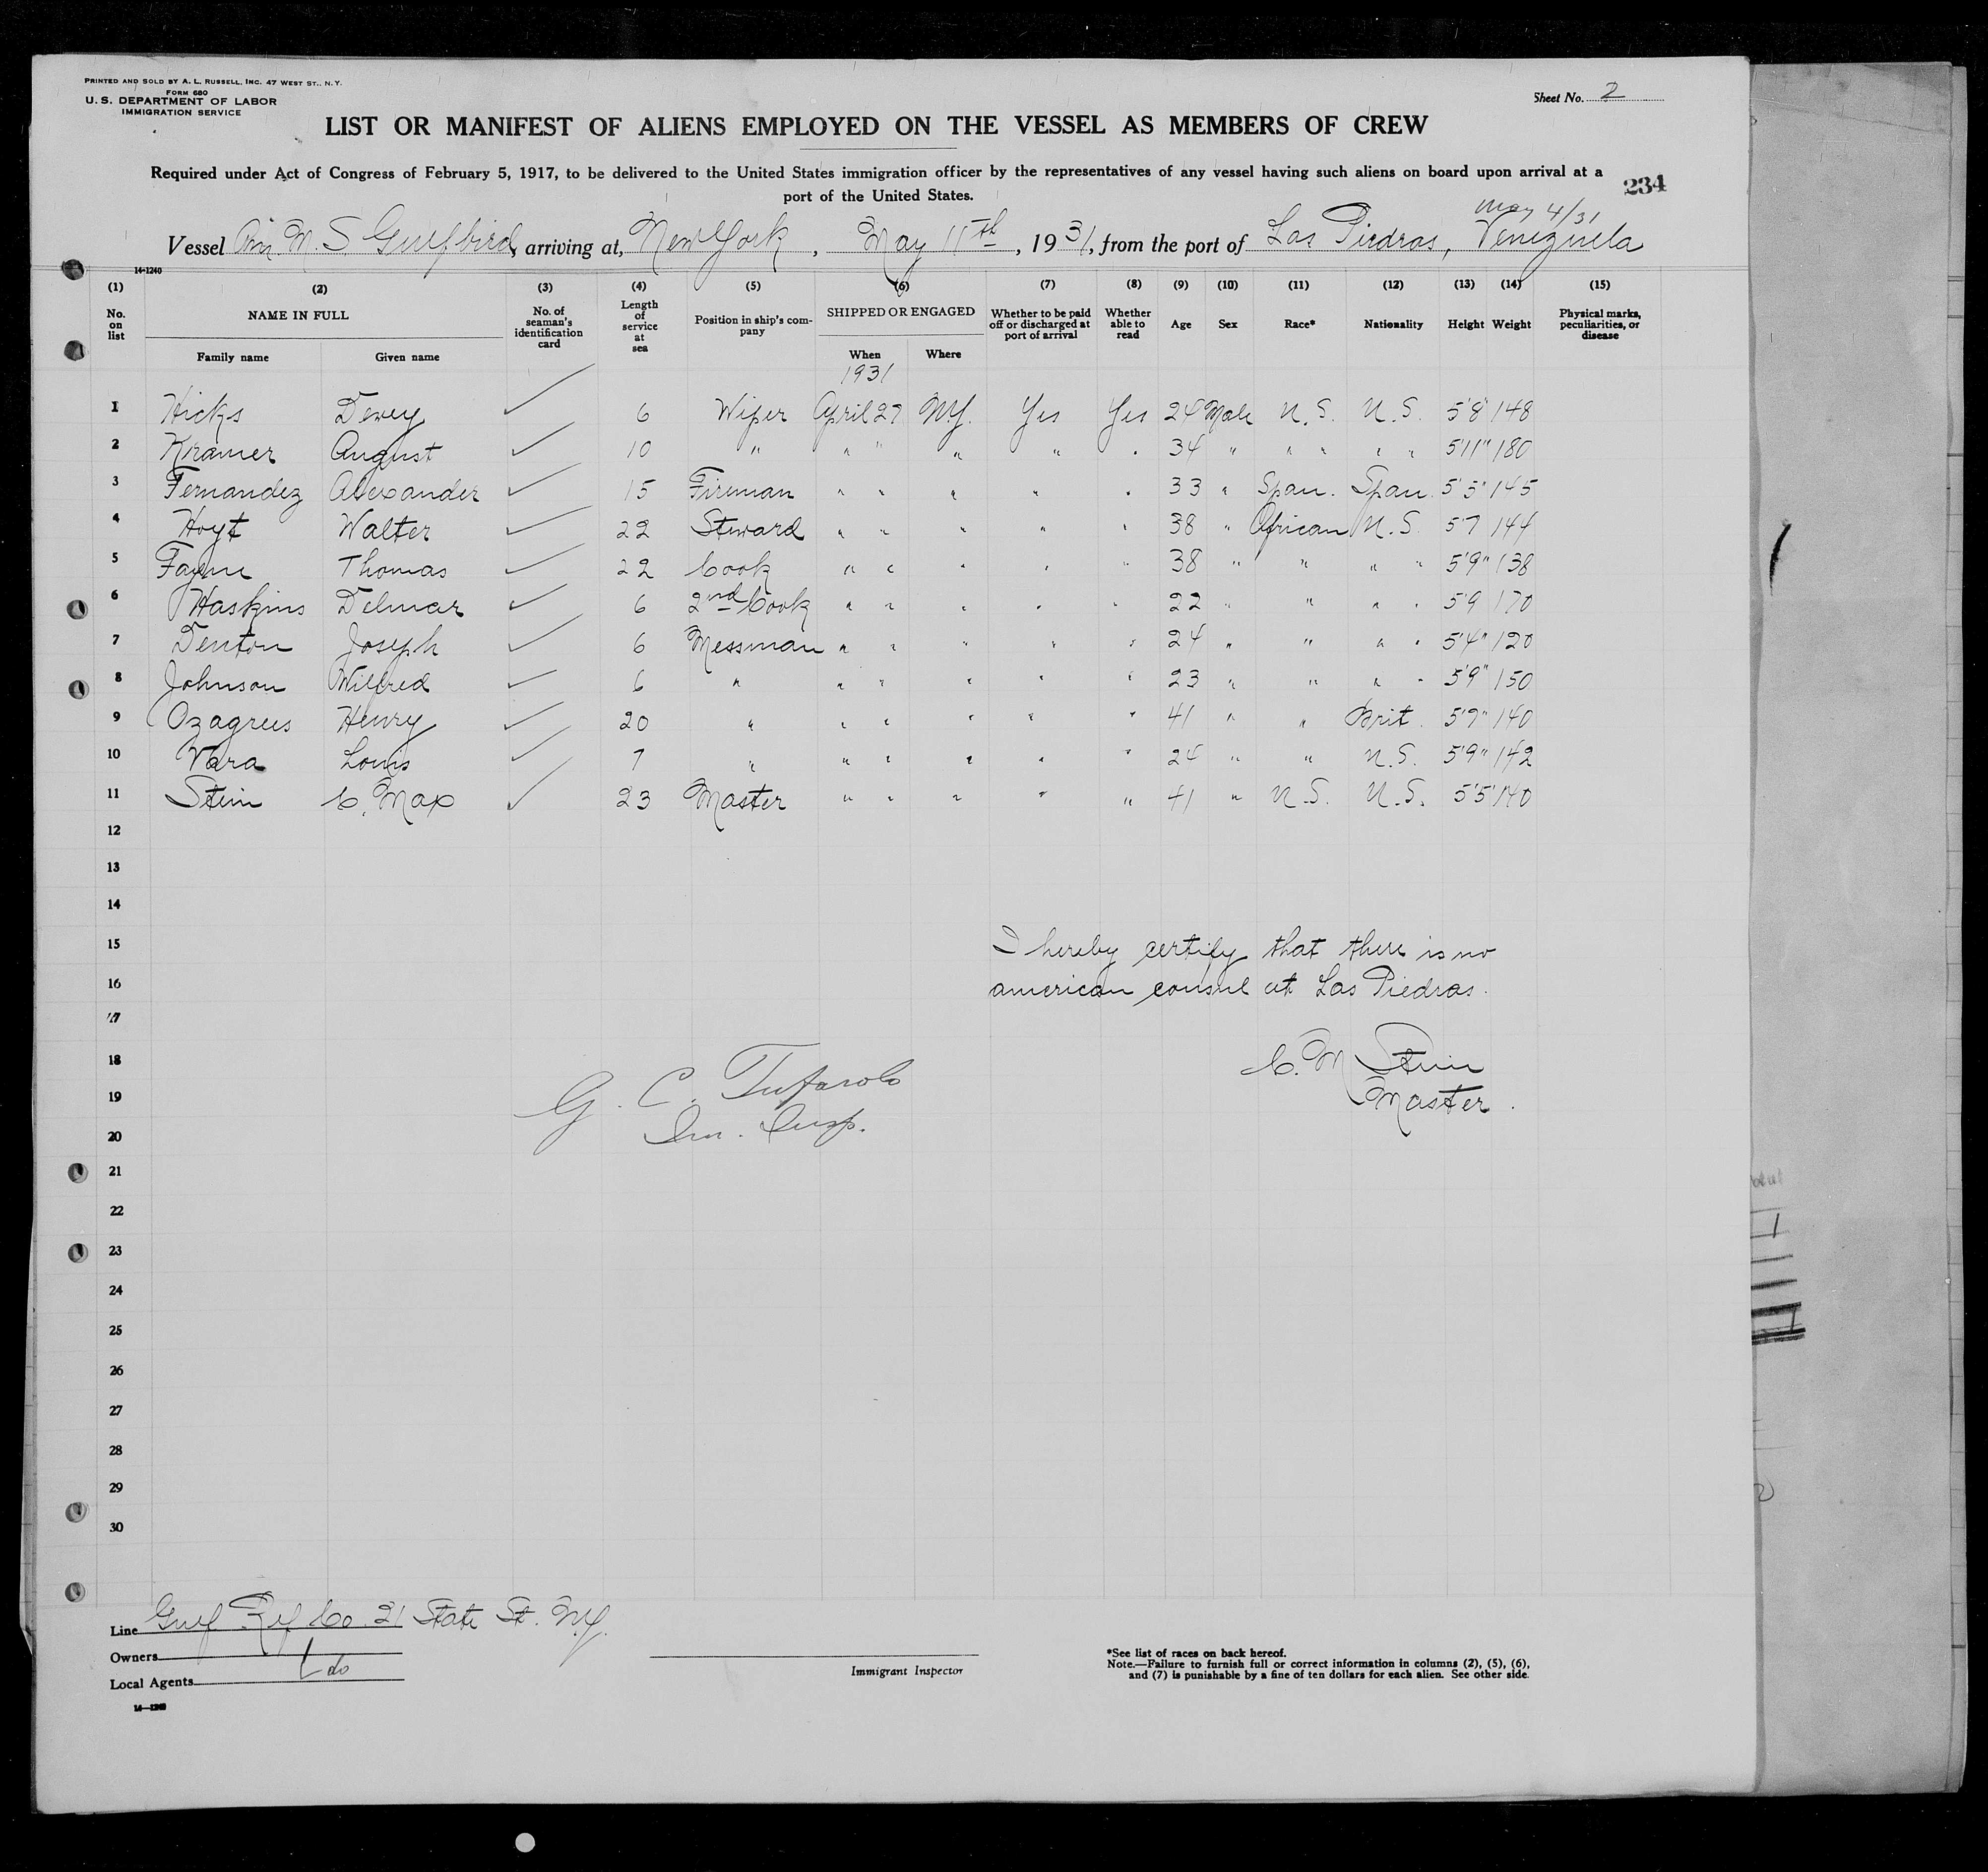 PRINTED AND SOLD BY A. L. RUSSELL, INC. 47 WEST ST., N.Y.
FORM 680
U. S. DEPARTMENT OF LABOR
IMMIGRATION SERVICE
Sheet No. 2
LIST OR MANIFEST OF ALIENS EMPLOYED ON THE VESSEL AS MEMBERS OF CREW
Required under Act of Congress of February 5, 1917, to be delivered to the United States immigration officer by the representatives of any vessel having such aliens on board upon arrival at a
port of the United States.
234
May 4/31
Vessel Am. M. S. Gulfbird, arriving at, New York, May 11th, 1931, from the port of Las Piedras, Venezuela
14-1240
(1) (2) (3) (4) (5) (6) (7) (8) (9) (10) (11) (12) (13) (14) (15)
No. on list
NAME IN FULL
Family name Given name
No. of seaman's identification card
Length of service at sea
Position in ship's company
SHIPPED OR ENGAGED
When Where
Whether to be paid off or discharged at port of arrival
Whether able to read
Age Sex Race* Nationality Height Weight
Physical marks, peculiarities, or disease
1931
1 Hicks Dewey ✓ 6 Wiper April 27 N.Y. Yes Yes 24 Male U.S. U.S. 5'8" 148
2 Kramer August ✓ 10 " " " " " " 34 " " " " " 5'11" 180
3 Fernandez Alexander ✓ 15 Fireman " " " " " 33 " Span. Span. 5'5" 145
4 Hoyt Walter ✓ 22 Steward " " " " " 38 " African U.S. 5'7 144
5 Thomas ✓ 22 Cook " " " " " 38 " " " " 5'9" 138
6 Haskins Delmar ✓ 6 2nd Cook " " " " " 22 " " " " 5'9 170
7 Denton Joseph ✓ 6 Messman " " " " " 24 " " " " 5'4" 120
8 Johnson Wilfred ✓ 6 " " " " " " 23 " " " " 5'9" 150
9 Ozagreus Henry ✓ 20 " " " " " " 41 " " Brit. 5'7" 140
10 Vara Louis ✓ 7 " " " " " " 24 " " U.S. 5'9" 142
11 Stein C. Max ✓ 23 Master " " " " " 41 " U.S. U.S. 5'5" 140
12
13
14
15 I hereby certify that there is no
16 american consul at Las Piedras.
17
18 C. M Stein
19 G. C. Tufarolo Master.
20 Im. Insp.
21
22
23
24
25
26
27
28
29
30
Line Gulf Ref Co. 21 State St. N.Y.
Owners
Local Agents do
Immigrant Inspector
*See list of races on back hereof.
Note.—Failure to furnish full or correct information in columns (2), (5), (6),
and (7) is punishable by a fine of ten dollars for each alien. See other side.
14—1240